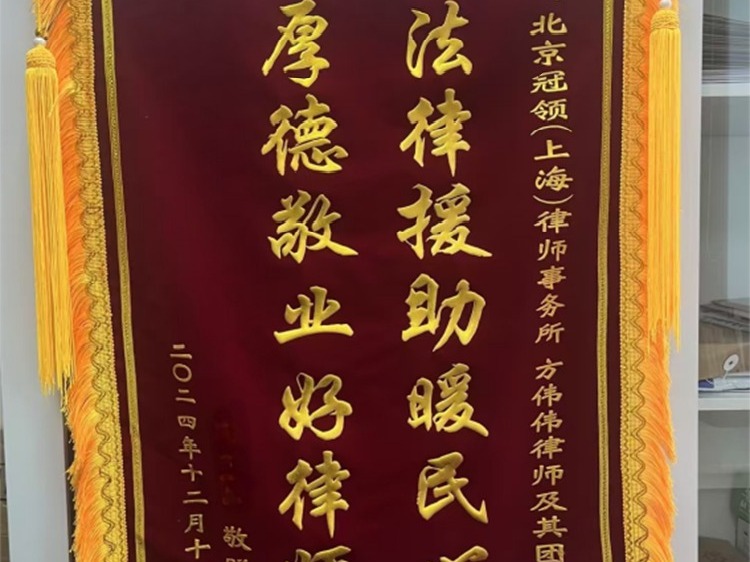 北京冠领(上海)律师事务所 方伟伟律师及其团
法律援助暖民
厚德敬业好律师
敬
二〇二四年十二月十